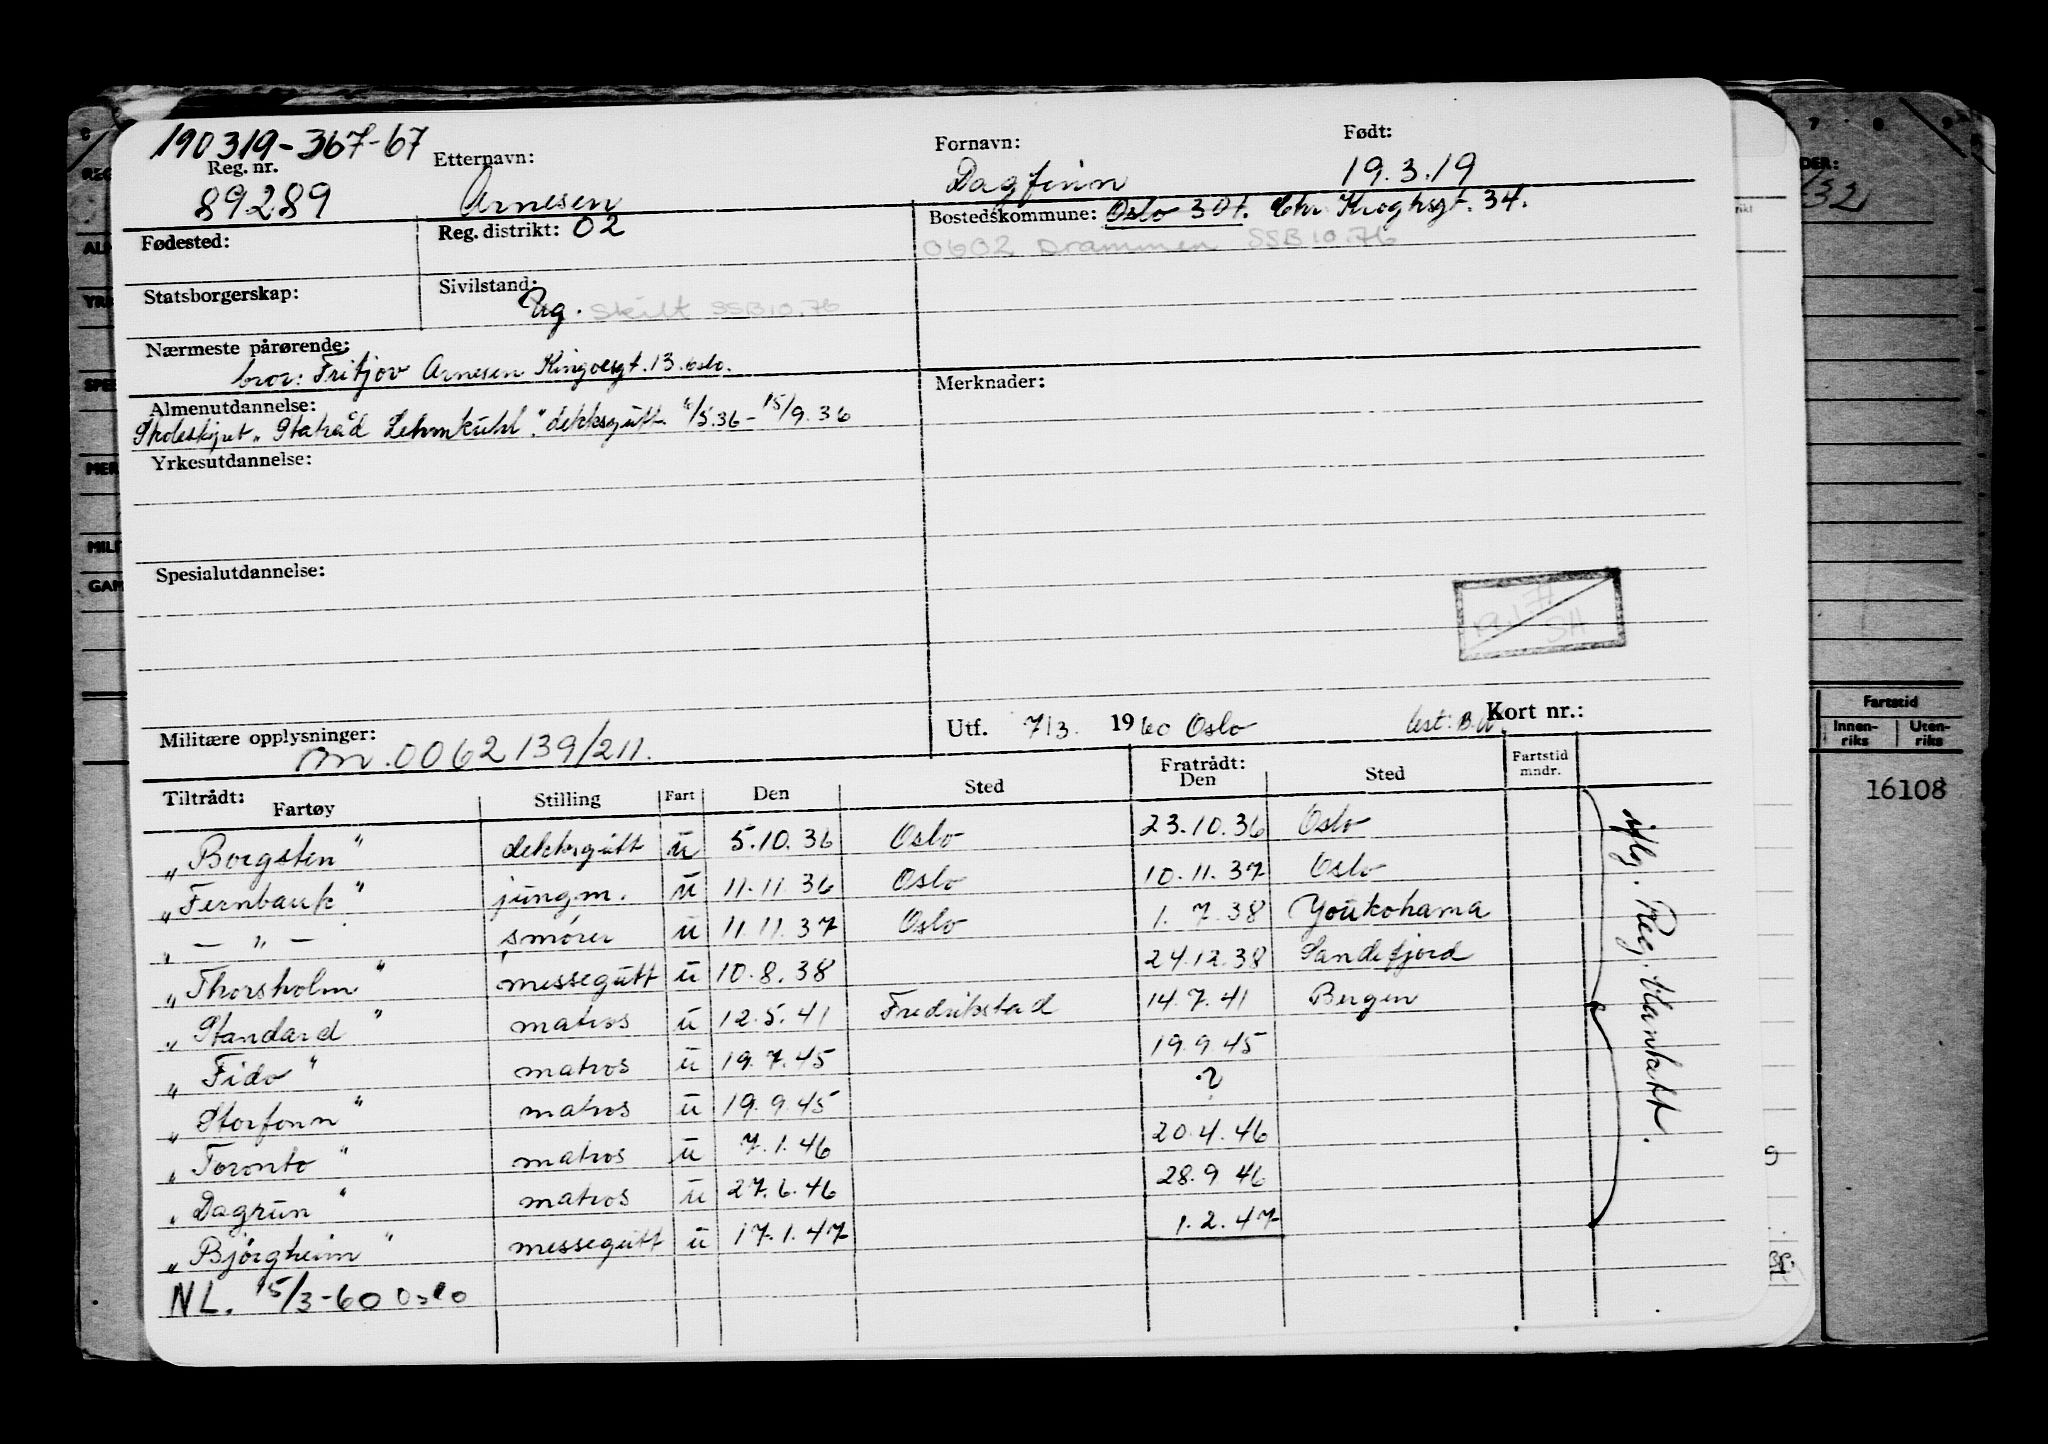 190319-367-67
Reg. nr. Etternavn: Fornavn: Født:
89289 Arnesen Dagfinn 19.3.19
Fødested: Reg. distrikt: 02 Bostedskommune: Oslo 301. Chr. Kroghsgt. 34.
0602 Drammen SSB 10.76
Statsborgerskap: Sivilstand:
Ug. Skilt SSB 10.76
Nærmeste pårørende:
bror: Fritjov Arnesen Kingosgt. 13. Oslo.
Almenutdannelse: Merknader:
Skoleskipet "Statsråd Lehmkuhl". dekksgutt. 6/5.36 - 15/9.36
Yrkesutdannelse:
Spesialutdannelse:
Militære opplysninger: Utf. 7/3. 1960 Oslo Kort nr.:
m. 0062139/211.
Tiltrådt: Fratrådt:
Fartøy Stilling Fart Den Sted Den Sted Fartstid mndr.
"Borgsten" dekksgutt u 5.10.36 Oslo 23.10.36 Oslo
"Fernbank" jungm. u 11.11.36 Oslo 10.11.37 Oslo
" — " — smører u 11.11.37 Oslo 1.7.38 Youkohama
"Thorsholm" messegutt u 10.8.38 24.12.38 Sandefjord
"Standard" matros u 12.5.41 Fredrikstad 14.7.41 Bergen
"Fido" matros u 19.7.45 19.9.45
"Storfonn" matros u 19.9.45 ?
"Toronto" matros u 7.1.46 20.4.46
"Dagrun" matros u 27.6.46 28.9 46
"Bjørgheim" messegutt u 17.1.47 1.2.47
NL. 15/3-60 Oslo
iflg. Reg. Mankart.
7 8 9
DER:
232
Fartstid
Innen-riks Uten-riks
16108